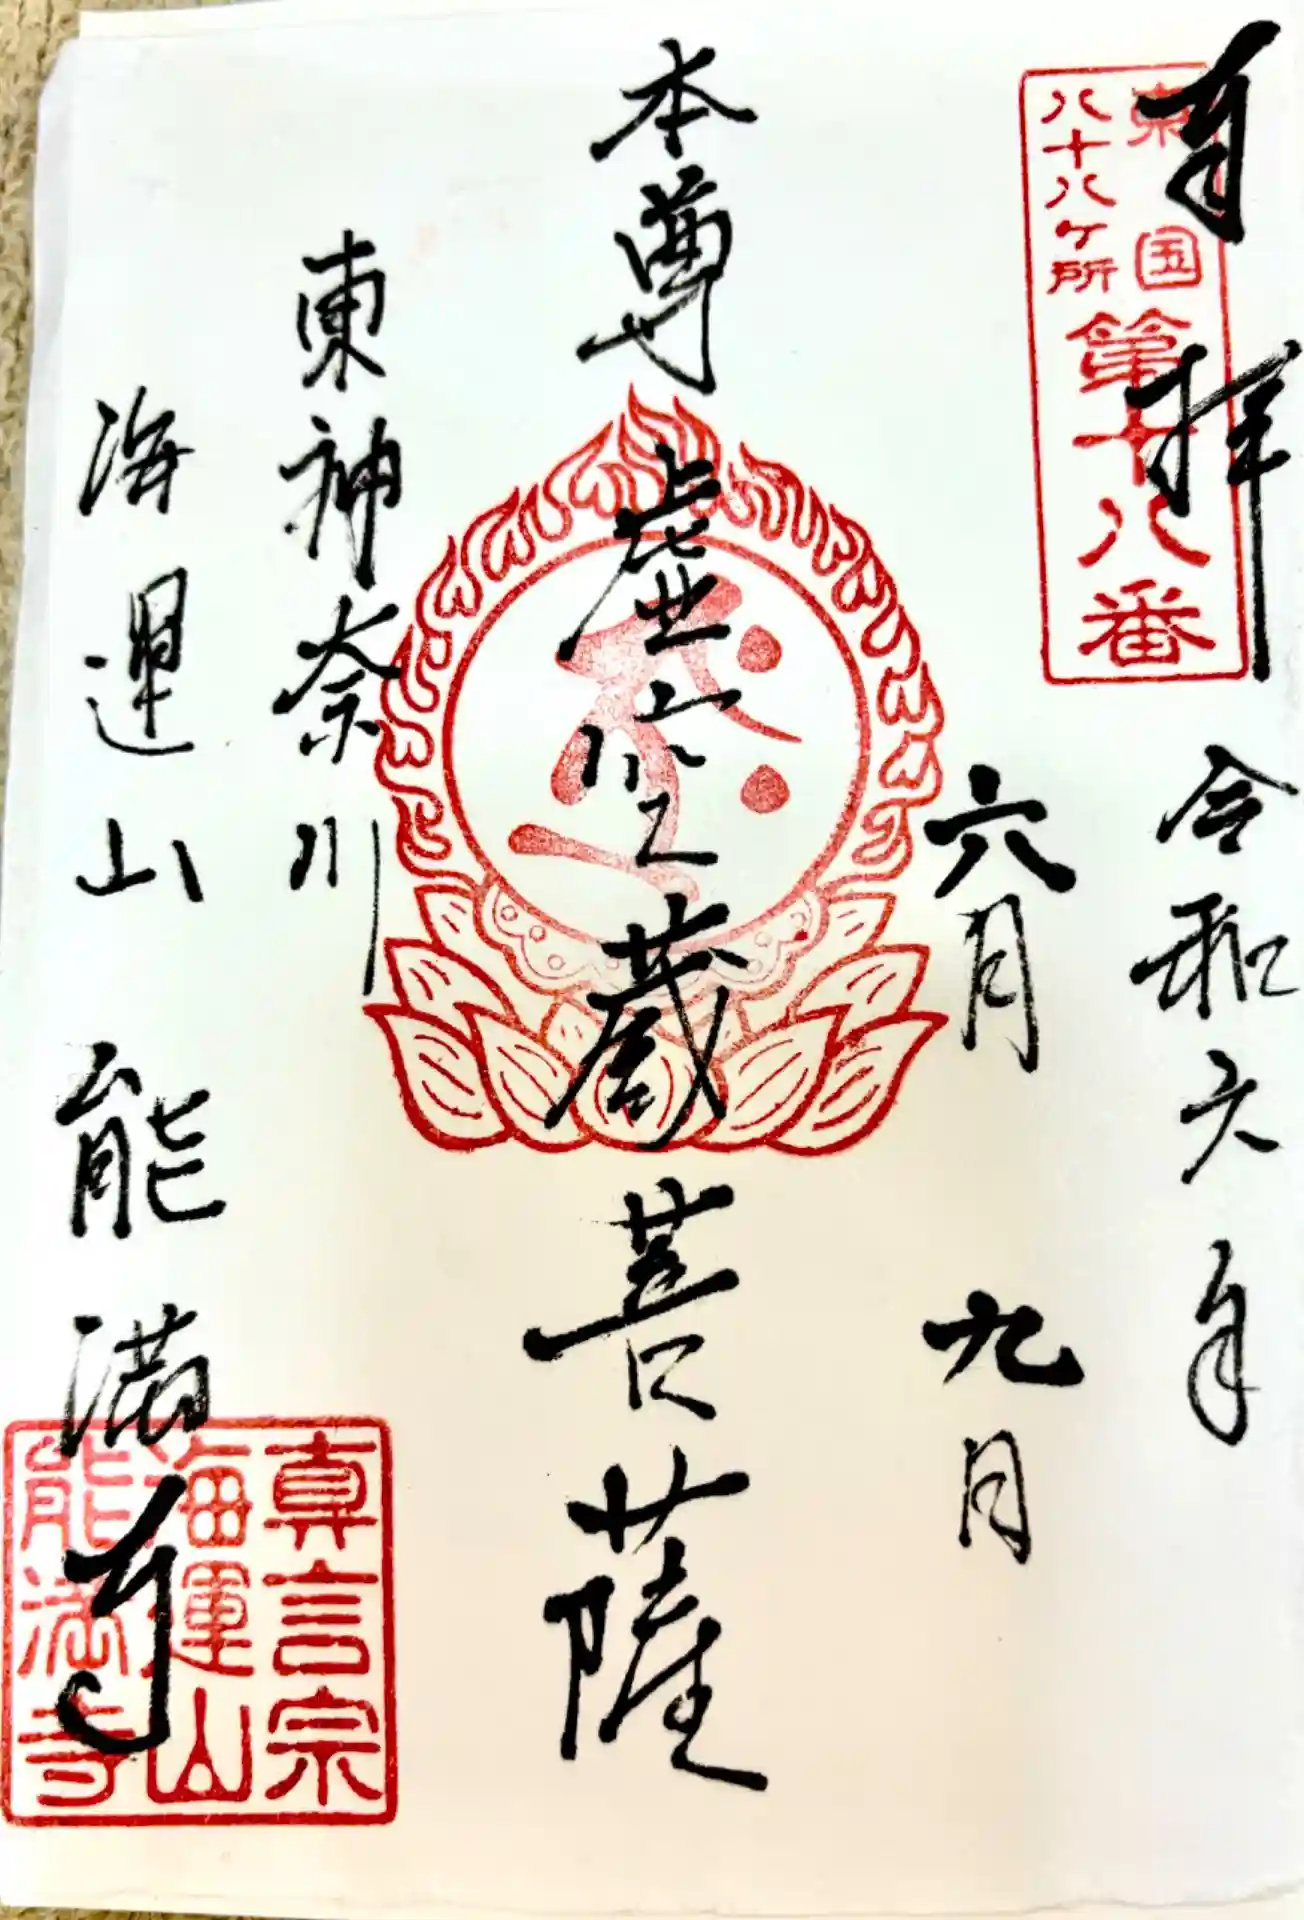 奉拝 令和六年
六月 九日
東国
八十八ケ所
第十八番
本尊 虚空蔵菩薩
東神奈川
海運山 能満寺
真言宗
海運山
能満寺